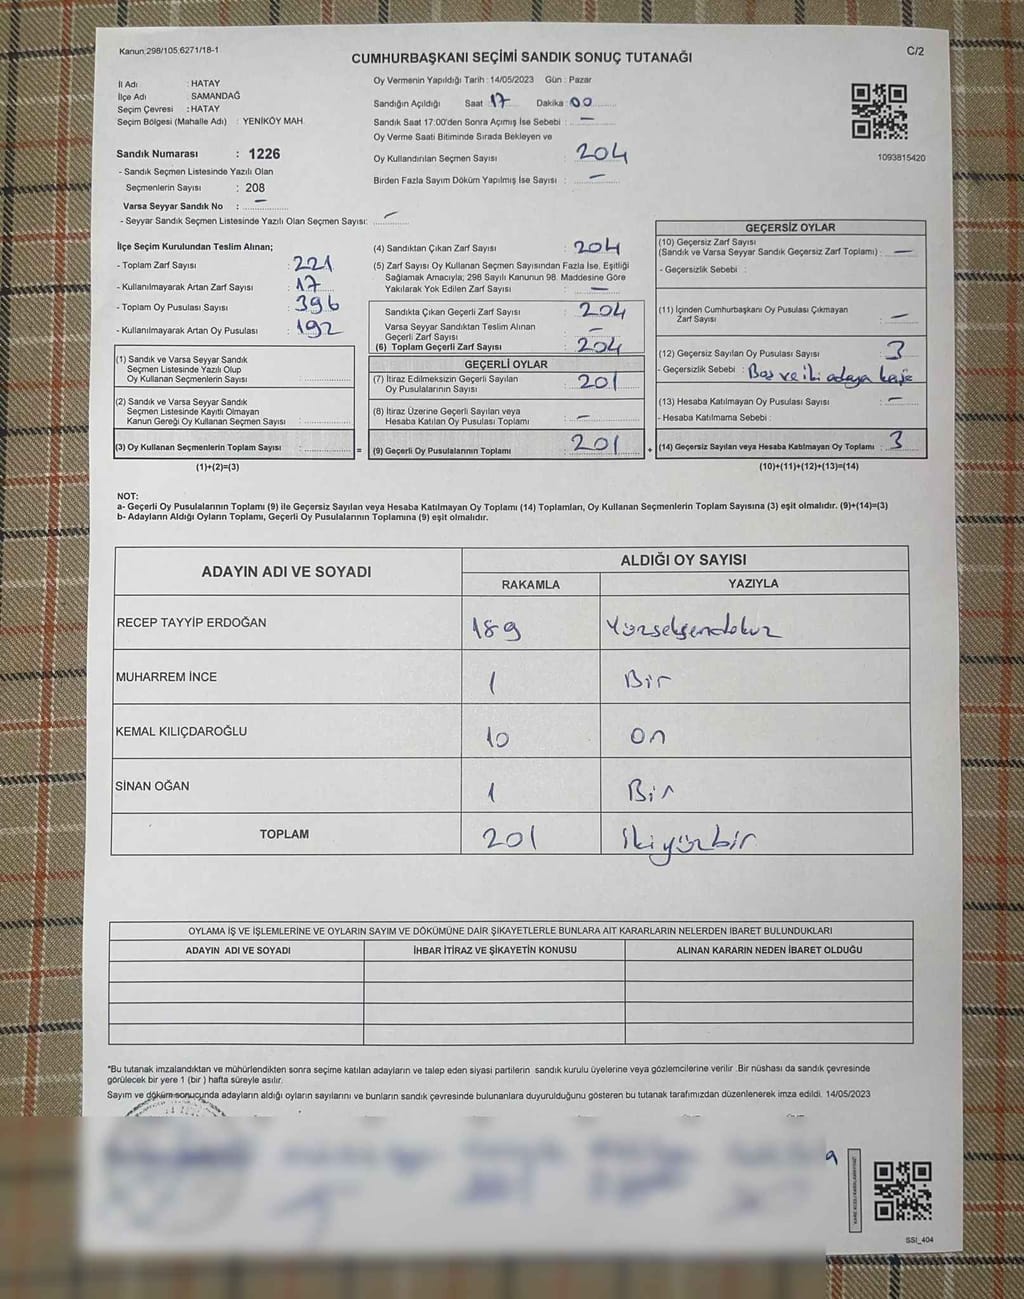 Kanun:298/105,6271/18-1
C/2
CUMHURBAŞKANI SEÇİMİ SANDIK SONUÇ TUTANAĞI
İl Adı : HATAY
İlçe Adı : SAMANDAĞ
Seçim Çevresi : HATAY
Seçim Bölgesi (Mahalle Adı) : YENİKÖY MAH.
Oy Vermenin Yapıldığı Tarih : 14/05/2023 Gün : Pazar
Sandığın Açıldığı Saat 17 Dakika : 00
Sandık Saat 17:00'den Sonra Açımış İse Sebebi : —
Oy Verme Saati Bitiminde Sırada Bekleyen ve
Oy Kullandırılan Seçmen Sayısı : 204
Birden Fazla Sayım Döküm Yapılmış İse Sayısı : —
1093815420
Sandık Numarası : 1226
- Sandık Seçmen Listesinde Yazılı Olan
Seçmenlerin Sayısı : 208
Varsa Seyyar Sandık No : —
- Seyyar Sandık Seçmen Listesinde Yazılı Olan Seçmen Sayısı: —
İlçe Seçim Kurulundan Teslim Alınan;
- Toplam Zarf Sayısı : 221
- Kullanılmayarak Artan Zarf Sayısı : 17
- Toplam Oy Pusulası Sayısı : 396
- Kullanılmayarak Artan Oy Pusulası : 192
(1) Sandık ve Varsa Seyyar Sandık
Seçmen Listesinde Yazılı Olup
Oy Kullanan Seçmenlerin Sayısı :
(2) Sandık ve Varsa Seyyar Sandık
Seçmen Listesinde Kayıtlı Olmayan
Kanun Gereği Oy Kullanan Seçmen Sayısı :
(3) Oy Kullanan Seçmenlerin Toplam Sayısı :
(1)+(2)=(3)
(4) Sandıktan Çıkan Zarf Sayısı : 204
(5) Zarf Sayısı Oy Kullanan Seçmen Sayısından Fazla İse, Eşitliği
Sağlamak Amacıyla; 298 Sayılı Kanunun 98. Maddesine Göre
Yakılarak Yok Edilen Zarf Sayısı : —
Sandıkta Çıkan Geçerli Zarf Sayısı : 204
Varsa Seyyar Sandıktan Teslim Alınan
Geçerli Zarf Sayısı : —
(6) Toplam Geçerli Zarf Sayısı : 204
GEÇERLİ OYLAR
(7) İtiraz Edilmeksizin Geçerli Sayılan
Oy Pusulalarının Sayısı : 201
(8) İtiraz Üzerine Geçerli Sayılan veya
Hesaba Katılan Oy Pusulası Toplamı : —
(9) Geçerli Oy Pusulalarının Toplamı : 201
GEÇERSİZ OYLAR
(10) Geçersiz Zarf Sayısı
(Sandık ve Varsa Seyyar Sandık Geçersiz Zarf Toplamı) : —
- Geçersizlik Sebebi :
(11) İçinden Cumhurbaşkanı Oy Pusulası Çıkmayan
Zarf Sayısı : —
(12) Geçersiz Sayılan Oy Pusulası Sayısı : 3
- Geçersizlik Sebebi : Boş ve iki adaya kaşe
(13) Hesaba Katılmayan Oy Pusulası Sayısı : —
- Hesaba Katılmama Sebebi :
(14) Geçersiz Sayılan veya Hesaba Katılmayan Oy Toplamı : 3
(10)+(11)+(12)+(13)=(14)
NOT:
a- Geçerli Oy Pusulalarının Toplamı (9) ile Geçersiz Sayılan veya Hesaba Katılmayan Oy Toplamı (14) Toplamları, Oy Kullanan Seçmenlerin Toplam Sayısına (3) eşit olmalıdır. (9)+(14)=(3)
b- Adayların Aldığı Oyların Toplamı, Geçerli Oy Pusulalarının Toplamına (9) eşit olmalıdır.
ADAYIN ADI VE SOYADI
ALDIĞI OY SAYISI
RAKAMLA YAZIYLA
RECEP TAYYİP ERDOĞAN 189 Yüzseksendokuz
MUHARREM İNCE 1 Bir
KEMAL KILIÇDAROĞLU 10 On
SİNAN OĞAN 1 Bir
TOPLAM 201 İkiyüzbir
OYLAMA İŞ VE İŞLEMLERİNE VE OYLARIN SAYIM VE DÖKÜMÜNE DAİR ŞİKAYETLERLE BUNLARA AİT KARARLARIN NELERDEN İBARET BULUNDUKLARI
ADAYIN ADI VE SOYADI İHBAR İTİRAZ VE ŞİKAYETİN KONUSU ALINAN KARARIN NEDEN İBARET OLDUĞU
*Bu tutanak imzalandıktan ve mühürlendikten sonra seçime katılan adayların ve talep eden siyasi partilerin sandık kurulu üyelerine veya gözlemcilerine verilir .Bir nüshası da sandık çevresinde
görülecek bir yere 1 (bir ) hafta süreyle asılır.
Sayım ve döküm sonucunda adayların aldığı oyların sayılarını ve bunların sandık çevresinde bulunanlara duyurulduğunu gösteren bu tutanak tarafımızdan düzenlenerek imza edildi. 14/05/2023
SSI_404